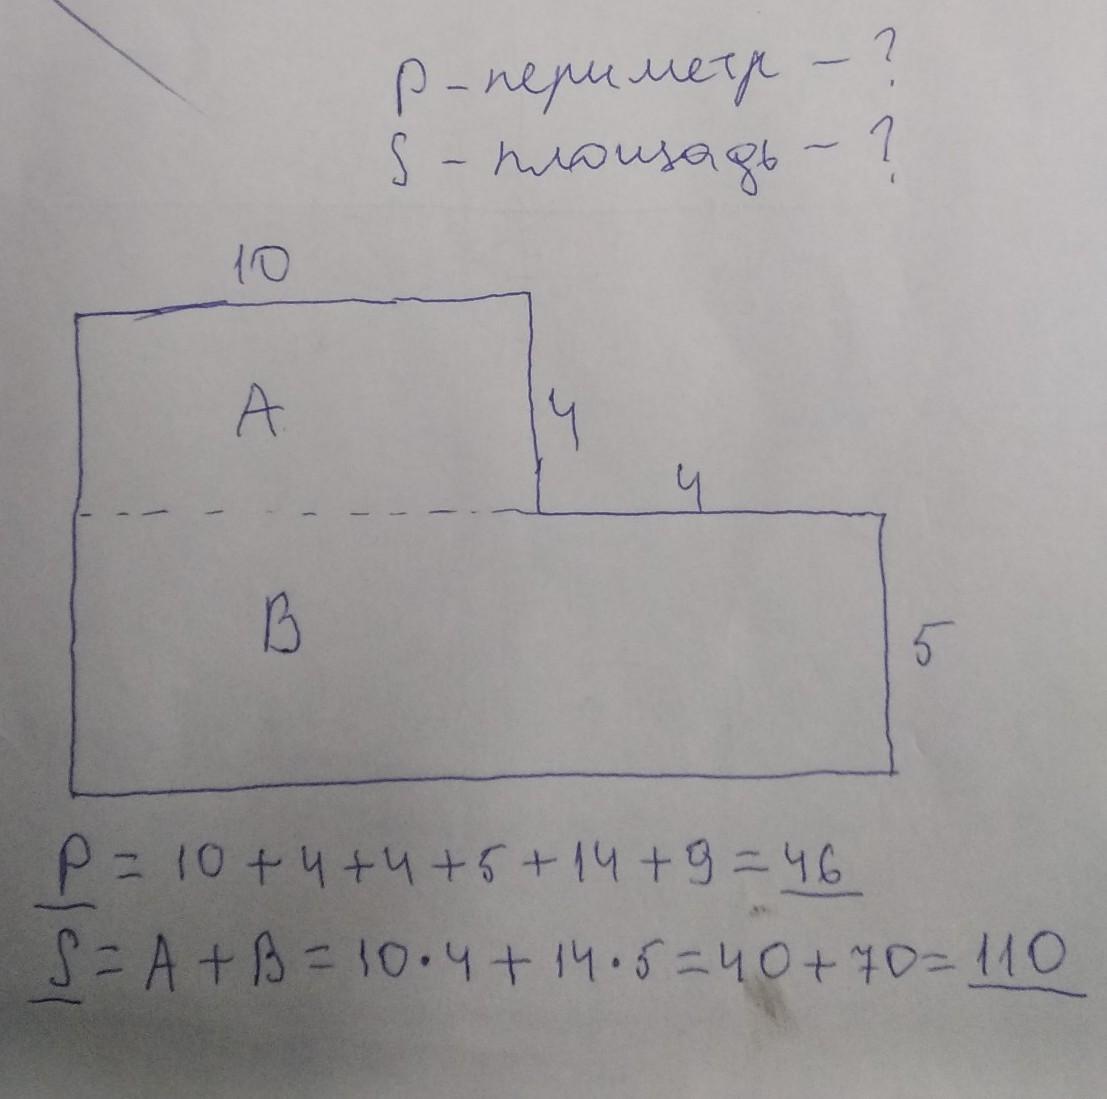 P - периметр - ?
S - площадь - ?
10
A
4
4
B
5
P = 10 + 4 + 4 + 5 + 14 + 9 = 46
S = A + B = 10 · 4 + 14 · 5 = 40 + 70 = 110